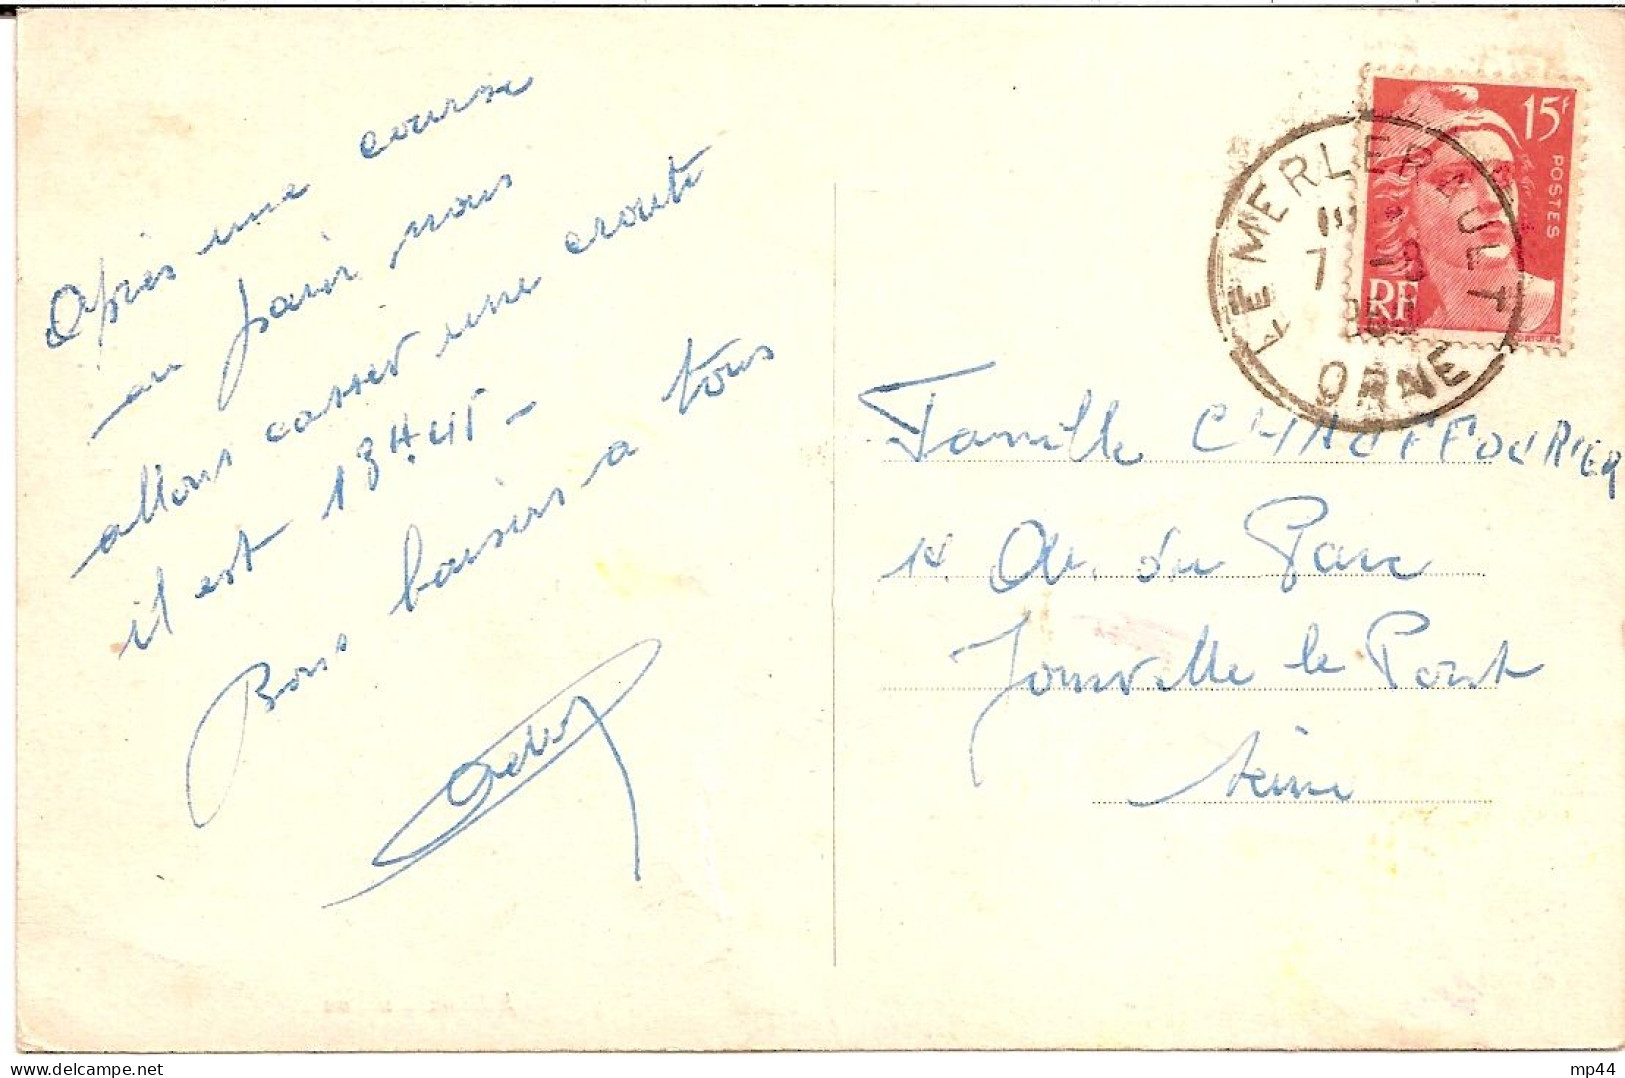 Après une course
au
nous
allons casser une croute
il est 18H45 -
Bons baisers a tous
15F
POSTES
RF
LE MERLERAULT
7 10
ORNE
Famille CHAUFFOURIER
14. Av. du Parc
Joinville le Pont
Seine
mp44